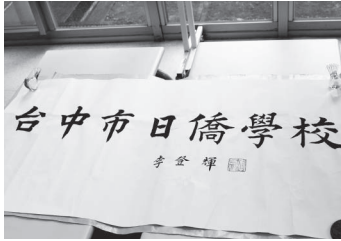 台中市日僑學校
李登輝